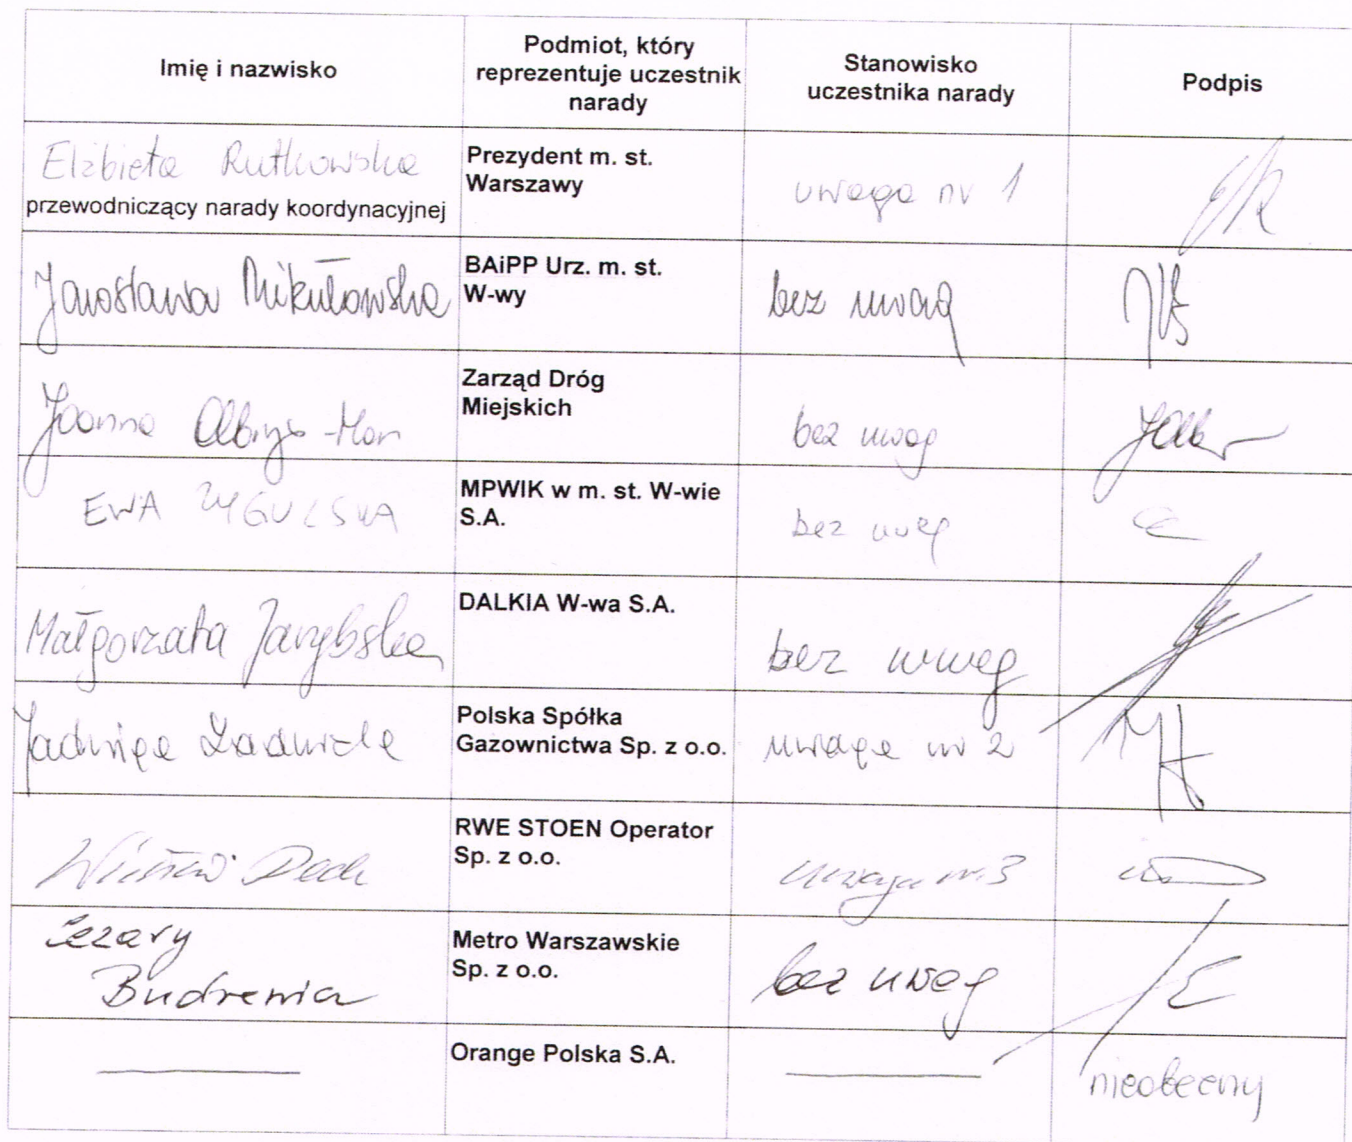 Imię i nazwisko
Podmiot, który
reprezentuje uczestnik
narady
Stanowisko
uczestnika narady
Podpis
Elżbieta Rutkowska
przewodniczący narady koordynacyjnej
Prezydent m. st.
Warszawy
uwaga nr 1
Jarosława Mikułowska
BAiPP Urz. m. st.
W-wy
bez uwag
Joanna
Zarząd Dróg
Miejskich
bez uwag
EWA
MPWIK w m. st. W-wie
S.A.
bez uwag
Małgorzata
DALKIA W-wa S.A.
bez uwag
Jadwiga
Polska Spółka
Gazownictwa Sp. z o.o.
uwaga nr 2
RWE STOEN Operator
Sp. z o.o.
uwaga nr 3
Cezary
Metro Warszawskie
Sp. z o.o.
bez uwag
Orange Polska S.A.
nieobecny